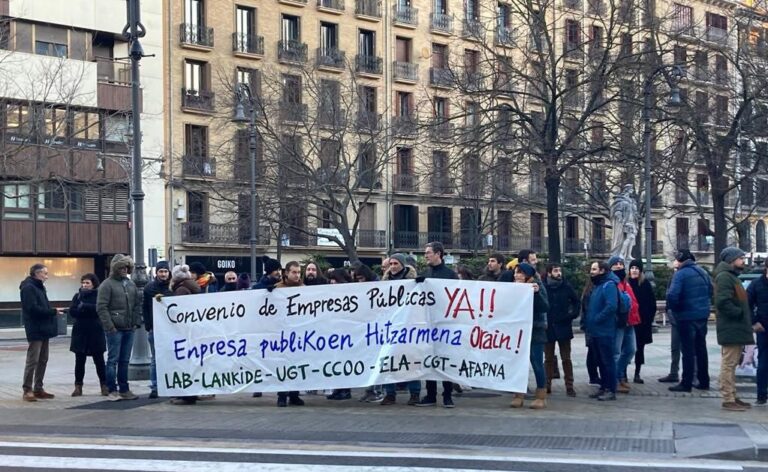 GOIKO
Convenio de Empresas Públicas YA!!
Enpresa publiKoen Hitzarmena Orain!
LAB-LANKIDE-UGT-CCOO-ELA-CGT-AFAPNA